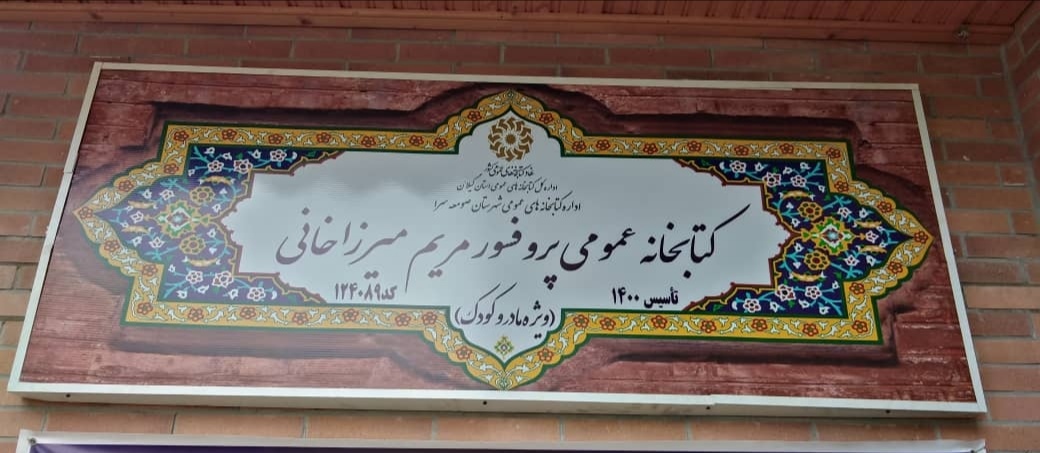 نهاد کتابخانه‌های عمومی کشور
اداره کل کتابخانه های عمومی استان گیلان
اداره کتابخانه های عمومی شهرستان صومعه سرا
کتابخانه عمومی پروفسور مریم میرزاخانی
تأسیس ۱۴۰۰ کد ۱۲۴۰۸۹
(ویژه مادر و کودک)